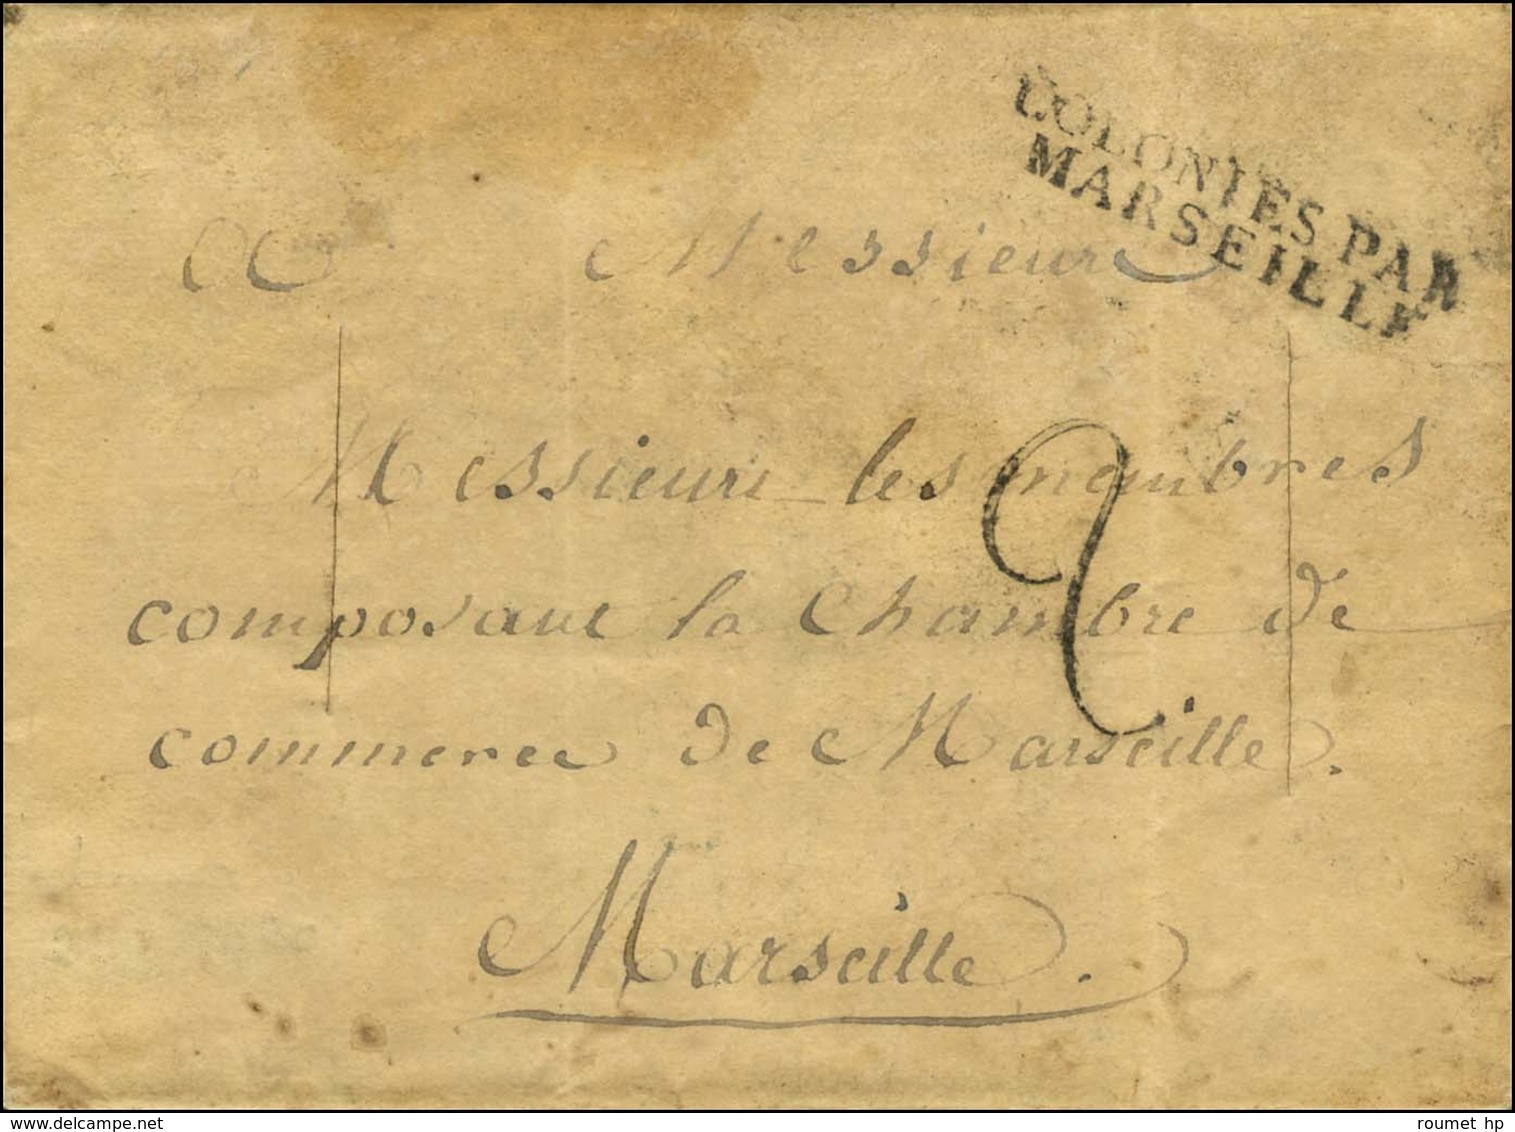 COLONIES PAR
MARSEILLE
A Messieurs
Messieurs les membres
composant la Chambre de
commerce de Marseille.
2
Marseille.
delcampe.net
roumet hp